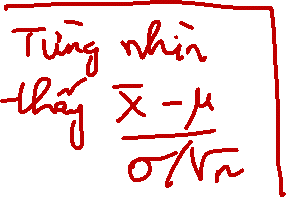 Từng nhìn
thấy x̄ - μ
σ/√n